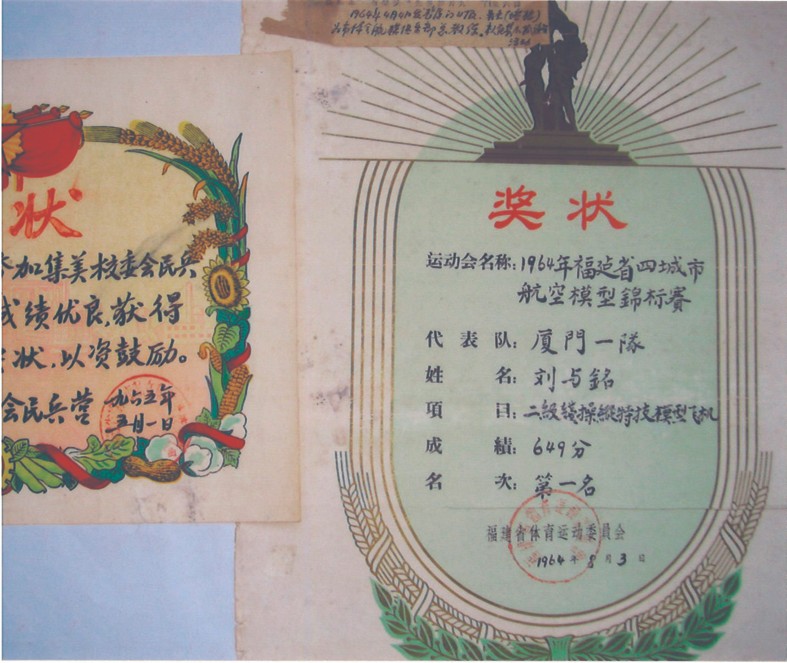 状
加集美校委会民兵
成绩优良,获得
状,以资鼓励。
会民兵营
一九六五年
五月一日
奖状
运动会名称:1964年福建省四城市
航空模型錦标賽
代表队:厦門一隊
姓名:刘与銘
項目:二級线操縱特技模型飞机
成績:649分
名次:第一名
福建省体育运动委員会
1964年8月3日